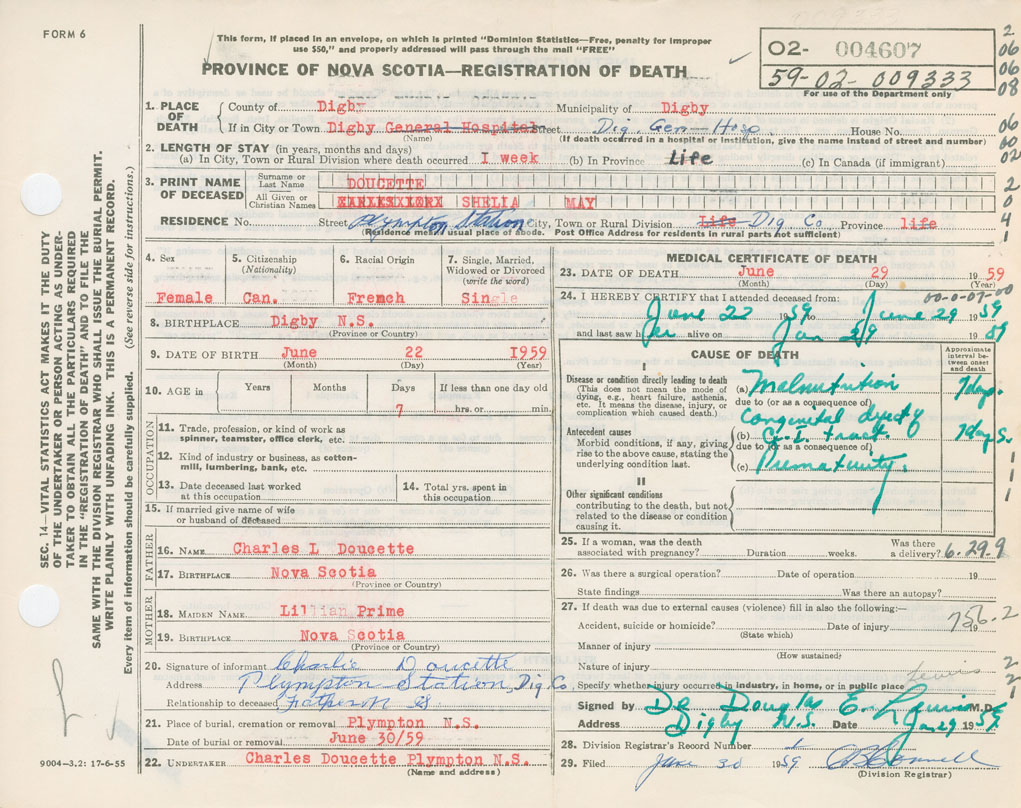 FORM 6
This form, if placed in an envelope, on which is printed "Dominion Statistics—Free, penalty for improper
use $50," and properly addressed will pass through the mail "FREE"
PROVINCE OF NOVA SCOTIA—REGISTRATION OF DEATH
02- 004607
59-02-009333
For use of the Department only
2
06
06
08
06
00
02
2
0
4
1
SEC. 14—VITAL STATISTICS ACT MAKES IT THE DUTY
OF THE UNDERTAKER OR PERSON ACTING AS UNDER-
TAKER TO OBTAIN ALL THE PARTICULARS REQUIRED
IN THE "REGISTRATION OF DEATH" AND TO FILE THE
SAME WITH THE DIVISION REGISTRAR WHO SHALL ISSUE THE BURIAL PERMIT.
WRITE PLAINLY WITH UNFADING INK. THIS IS A PERMANENT RECORD.
Every item of information should be carefully supplied. (See reverse side for instructions.)
1. PLACE OF DEATH County of Digby Municipality of Digby
If in City or Town Digby General Hospital Street Dig. Gen-Hosp. House No.
(Name) (If death occurred in a hospital or institution, give the name instead of street and number)
2. LENGTH OF STAY (in years, months and days)
(a) In City, Town or Rural Division where death occurred 1 week (b) In Province Life (c) In Canada (if immigrant)
3. PRINT NAME OF DECEASED Surname or Last Name DOUCETTE
All Given or Christian Names SHELIA MAY
RESIDENCE No. Street Plympton Station City, Town or Rural Division Life Dig. Co. Province life
(Residence means usual place of abode. Post Office Address for residents in rural parts not sufficient)
4. Sex Female
5. Citizenship (Nationality) Can.
6. Racial Origin French
7. Single, Married, Widowed or Divorced (write the word) Single
8. BIRTHPLACE Digby N.S.
(Province or Country)
9. DATE OF BIRTH June 22 1959
(Month) (Day) (Year)
10. AGE in Years Months Days 7 If less than one day old hrs. or min.
OCCUPATION
11. Trade, profession, or kind of work as
spinner, teamster, office clerk, etc.
12. Kind of industry or business, as cotton-
mill, lumbering, bank, etc.
13. Date deceased last worked
at this occupation
14. Total yrs. spent in
this occupation
15. If married give name of wife
or husband of deceased
FATHER
16. NAME Charles L Doucette
17. BIRTHPLACE Nova Scotia
(Province or Country)
MOTHER
18. MAIDEN NAME Lillian Prime
19. BIRTHPLACE Nova Scotia
(Province or Country)
20. Signature of informant Charlie Doucette
Address Plympton Station, Dig. Co.
Relationship to deceased Father
21. Place of burial, cremation or removal Plympton N.S.
Date of burial or removal June 30/59
22. UNDERTAKER Charles Doucette Plympton N.S.
(Name and address)
9004—3.2: 17-6-55
MEDICAL CERTIFICATE OF DEATH
23. DATE OF DEATH June 29 1959
(Month) (Day) (Year)
00-0-07-00
24. I HEREBY CERTIFY that I attended deceased from:
June 22 1959 to June 29 1959
and last saw her alive on 29 19
CAUSE OF DEATH
Approximate interval between onset and death
I
Disease or condition directly leading to death
(This does not mean the mode of dying, e.g., heart failure, asthenia, etc. It means the disease, injury, or complication which caused death.)
(a) Malnutrition 7 days.
due to (or as a consequence of)
Congenital
Antecedent causes
Morbid conditions, if any, giving rise to the above cause, stating the underlying condition last.
(b) G. I. Tract. 7 days.
due to (or as a consequence of)
(c) Prematurity.
1
1
1
II
Other significant conditions
contributing to the death, but not related to the disease or condition causing it.
25. If a woman, was the death
associated with pregnancy? Duration weeks. Was there a delivery?
6.29.9
26. Was there a surgical operation? Date of operation 19
State findings Was there an autopsy?
27. If death was due to external causes (violence) fill in also the following:—
756.2
Accident, suicide or homicide? Date of injury 19
(State which)
Manner of injury
(How sustained)
Nature of injury
Lewis
2
2
1
Specify whether injury occurred in industry, in home, or in public place
Signed by Dr Douglas E. Lewis M.D.
Address Digby N.S. Date 29 1959
28. Division Registrar's Record Number 1
29. Filed June 30 1959
(Division Registrar)